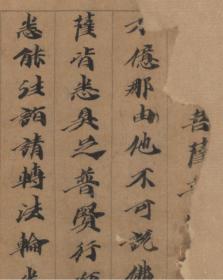 菩薩
億那由他不可說佛
薩皆悉具足普賢行
悉能往詣請轉法輪